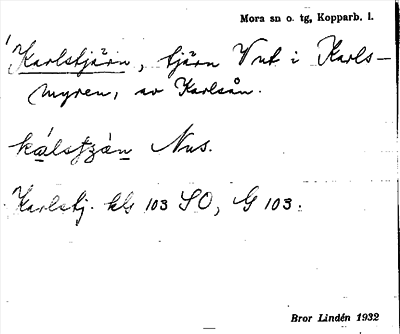 Mora sn o. tg, Kopparb. l.
Karlstjärn, tjärn V ut i Karls-
myren, av Karlsån.
kálstjzán Nus.
Karlstj. kls 103 SO, G 103.
Bror Lindén 1932